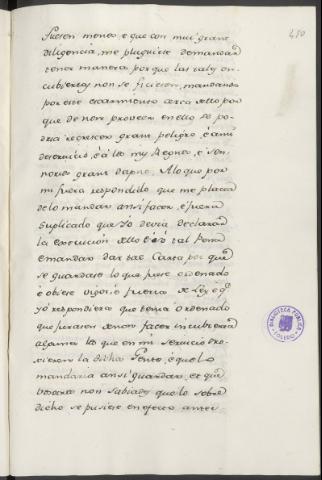 480
fuesen menos, e que con mui grant
diligencia, me pluguiese demandar
tener manera porque las tales en-
cubiertas non se ficiesen, mandando
poner escarmiento cerca dello por
que de non proveer en ello se po-
dria recrescer grant peligro, è à mi
deservicio, è à los mis Regnos, è Sen-
norios grant dapno. A lo que por
mi fuera respondido que me placia
delo mandar ansi facer, è fuera
suplicado que Yo devia declarar
la execucion dello tal Pena
è mandar dar tal Carta por que
se guardase lo que fuese ordenado
è obiese vigor è fuerza de Ley, è q.e
yo respondiera que tenia ordenado
que jurasen de non facer encubierta
alguna los que en mi servicio
la dicha Gente, è que lo
mandaria ansi guardar, et que
non lo sobre
dicho se pusiese en efecto antes
BIBLIOTECA PUBLICA
TOLEDO